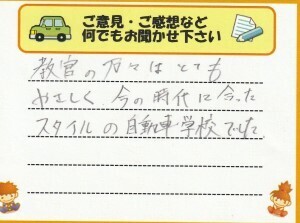 ご意見・ご感想など
何でもお聞かせ下さい
教官の方々はとても
やさしく今の時代に合った
スタイルの自動車学校でした